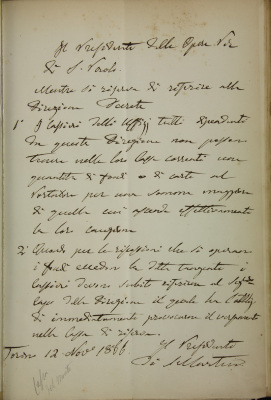 Il Presidente delle Opere Pie
di S. Paolo.
Mentre si riserva di riferire alla
Direzione Decreta
1° I Cassieri delli Uffizj tutti dipendenti
da questa Direzione non possono
tenere nelle loro Casse correnti una
quantità di fondi o di carte al
Portatore per una somma maggiore
di quella cui ascende effettivamente
la loro cauzione
2° Quando per le riscossioni che si operano
i fondi eccedon la detta tangente i
Cassieri devono subito riferirne al
Capo della Direzione il quale ha
di immediatamente provocarne il versamento
nella Cassa di riserva.
Torino 12 Nov. 1866
Il Presidente
Di S. Martino